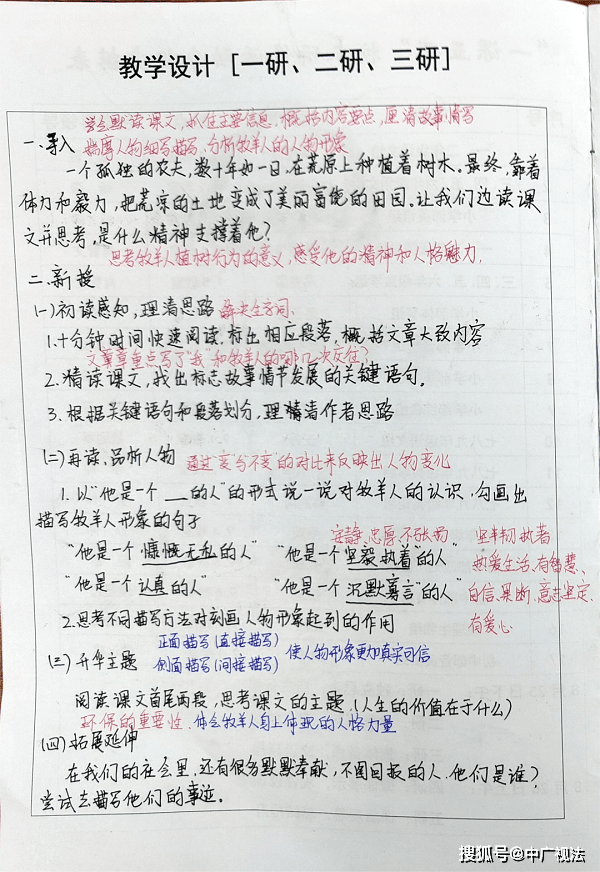 教学设计 [一研、二研、三研]
学会默读课文,抓住主要信息,概括内容要点,厘清故事情节
一、导入 揣摩人物细写描写,分析牧羊人的人物形象
一个孤独的农夫,数十年如一日,在荒原上种植着树木。最终,靠着
体力和毅力,把荒凉的土地变成了美丽富饶的田园。让我们边读课
文并思考,是什么精神支撑着他?
思考牧羊人植树行为的意义,感受他的精神和人格魅力,
二、新授
(一)初读感知,理清思路 解决生字词、
1.十分钟时间快速阅读,标出相应段落,概括文章大致内容
文章重点写了“我”和牧羊人的哪几次交往?
2.精读课文,找出标志故事情节发展的关键语句。
3.根据关键语句和段落划分,理清作者思路
(二)再读、品析人物 通过“变”与“不变”的对比来反映出人物变化
1.以“他是一个___的人”的形式说一说对牧羊人的认识,勾画出
描写牧羊人形象的句子
安静、忠厚、不张扬 坚韧执着
“他是一个慷慨无私的人” “他是一个坚毅执着”的人” 热爱生活、有智慧、
“他是一个认真的人” “他是一个沉默寡言”的人” 自信、果断、意志坚定、
2.思考不同描写方法对刻画人物形象起到的作用 有爱心
正面描写(直接描写)
(三)升华主题 侧面描写(间接描写) 使人物形象更加真实可信
阅读课文首尾两段,思考课文的主题(人生的价值在于什么)
环保的重要性、体会牧羊人身上体现的人格力量
(四)拓展延伸
在我们的社会里,还有很多默默奉献,不图回报的人,他们是谁?
尝试去描写他们的事迹。
搜狐号@中广视法